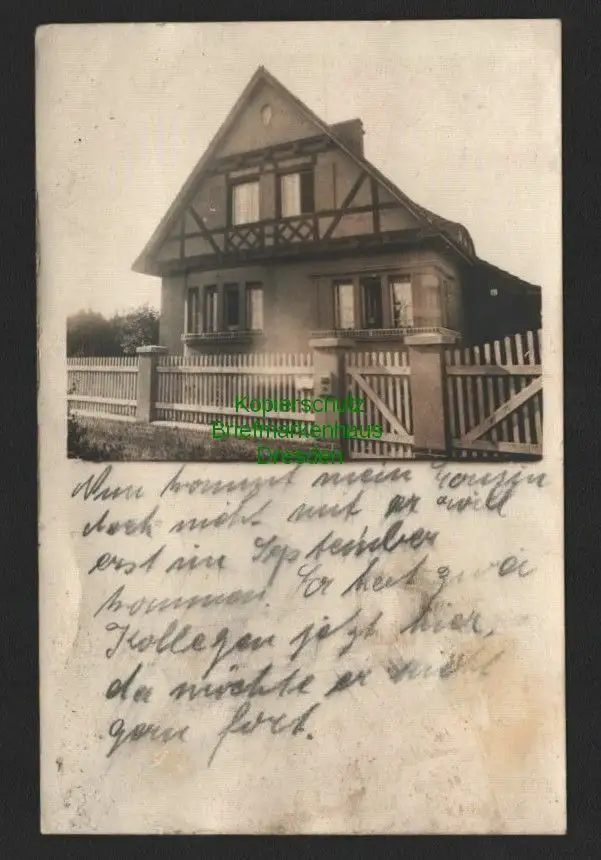 Kopierschutz
Briefmarkenhaus
Dresden
Nun kommt mein Cousin
doch nicht mit er will
erst im September
kommen. Er hat zwei
Kollegen jetzt hier,
da möchte er nicht
gern fort.